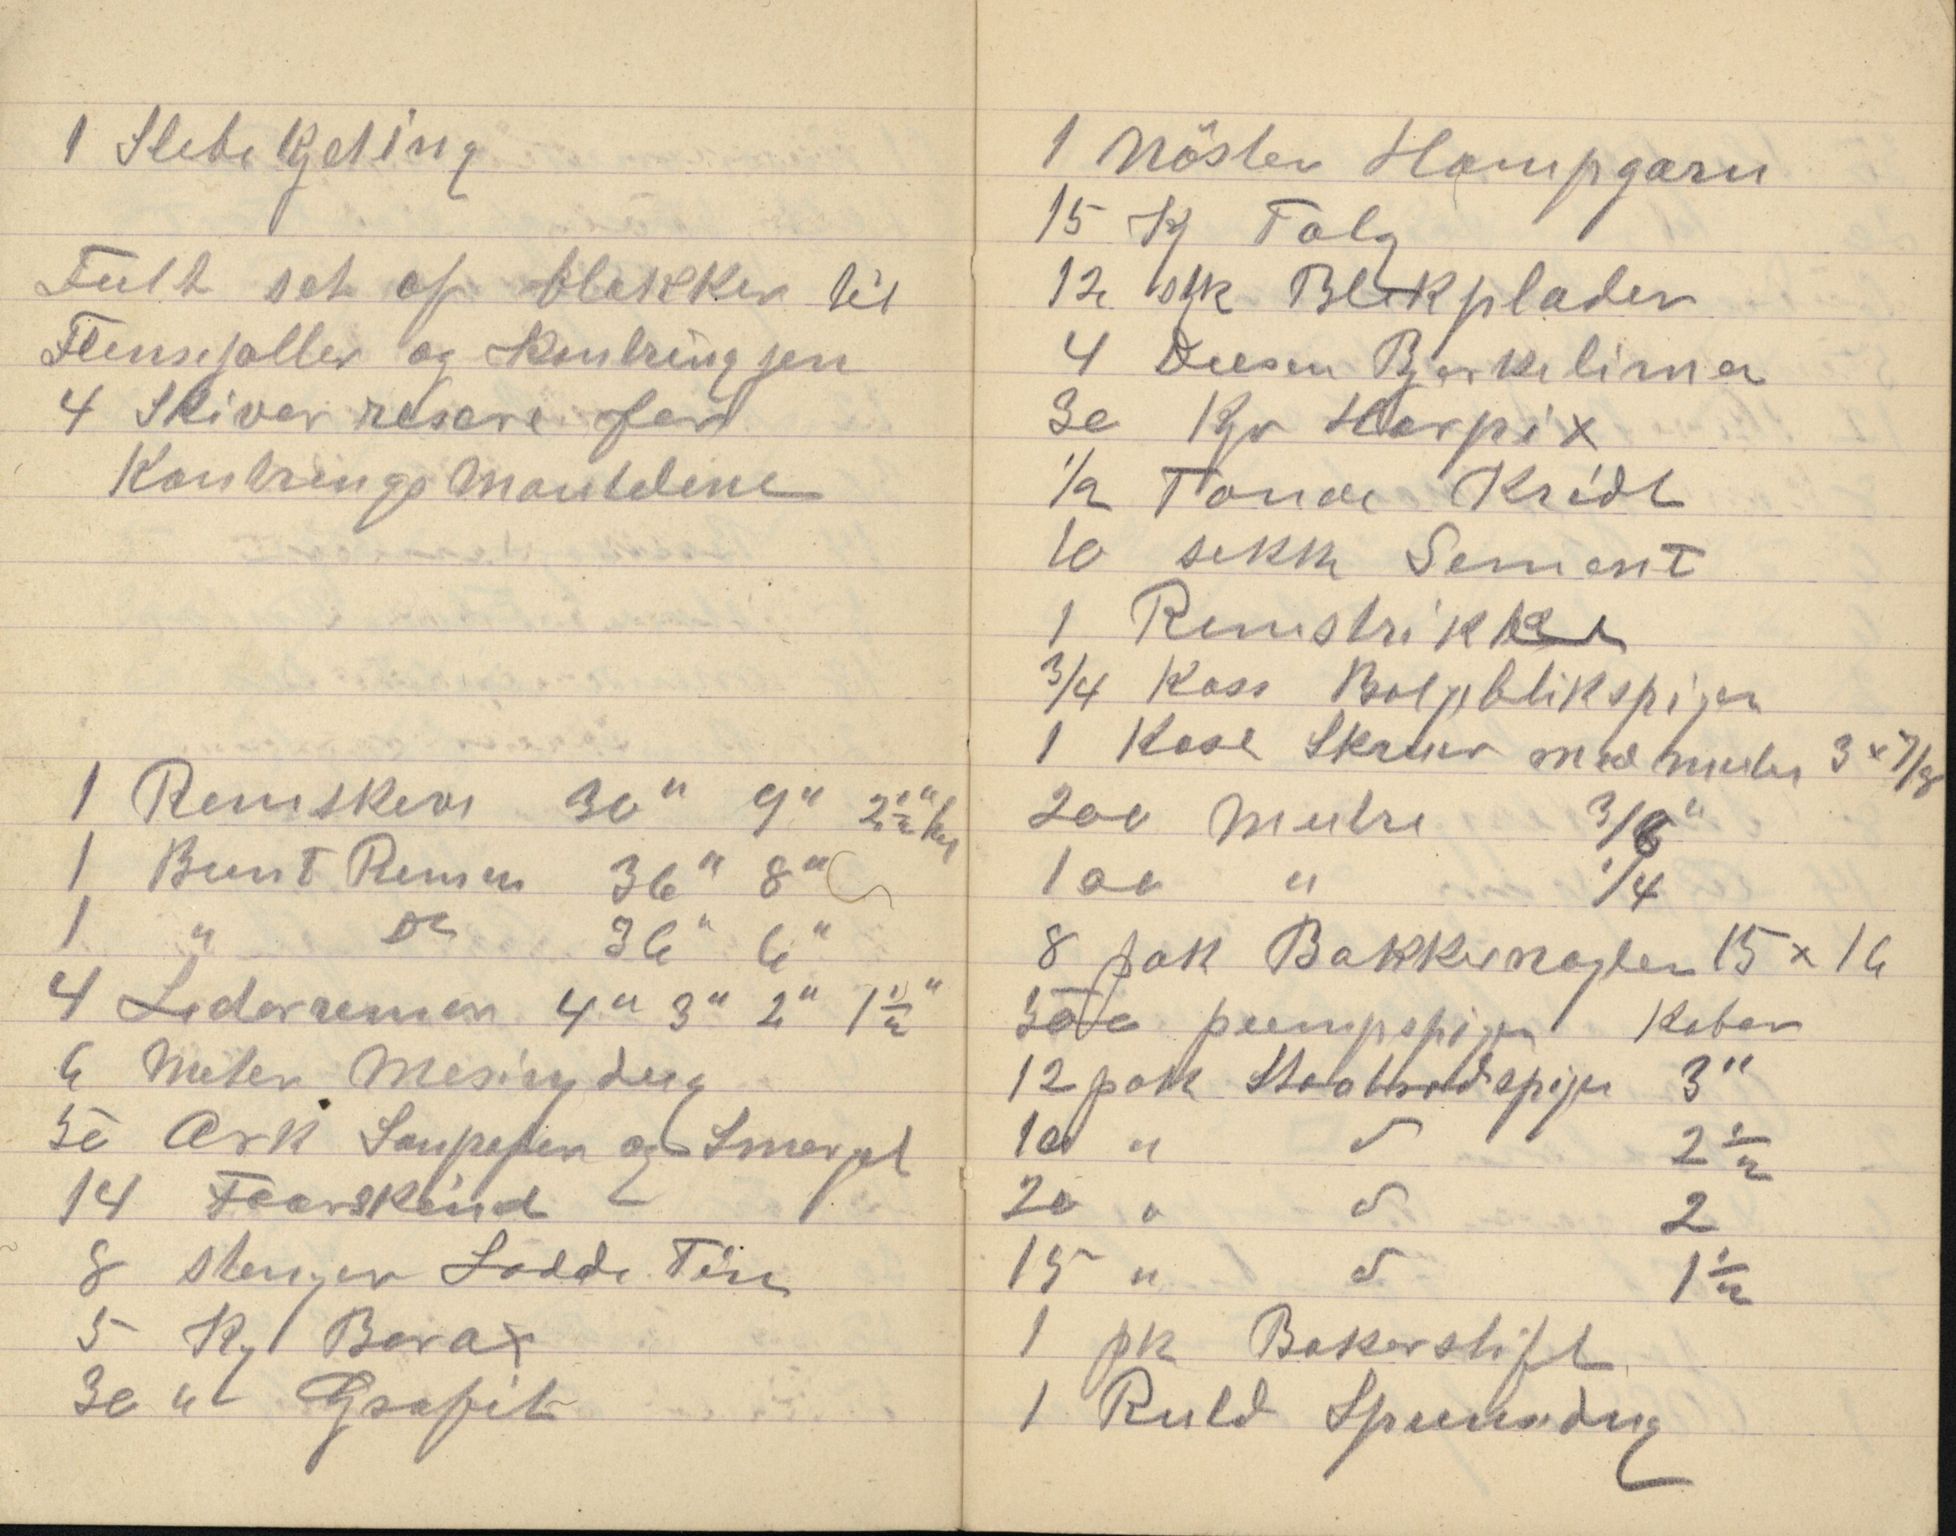 1 Slebekjeting
Fult set af blokker til
Flensejoller og Kantringjen
4 Skiver resere for
Kantrings Mantelene
1 Remskeve 30" 9" 2½" hul
1 Bunt Remen 36" 8"
1 " Do 36" 6"
4 Lederremer 4" 3" 2" 1½"
6 Meter Mesingdug
50 Ark Sanpapir og Smergel
14 Faarskind
8 stenger Lodde Tin
5 Kg Borax
30 " Grafit
1 Nöster Hampgarn
15 Kg Talg
12 stk Blekplader
4 Dusen Bjerkelimer
30 Kgr Harpix
1/2 Tonde Kridt
10 sekk Sement
1 Remstrikke
3/4 Kass Bolgeblikspiger
1 Kase Skruer med muter 3 x 7/8
200 Mutre 3/8"
100 " 1/4
8 pak Bakkernagler 15 x 16
300 pumpspiger Kober
12 pak Staaltraadspiger 3"
10 " d 2½
20 " d 2
15 " d 1½
1 pk Bakerstift
1 Ruld Spunsdug